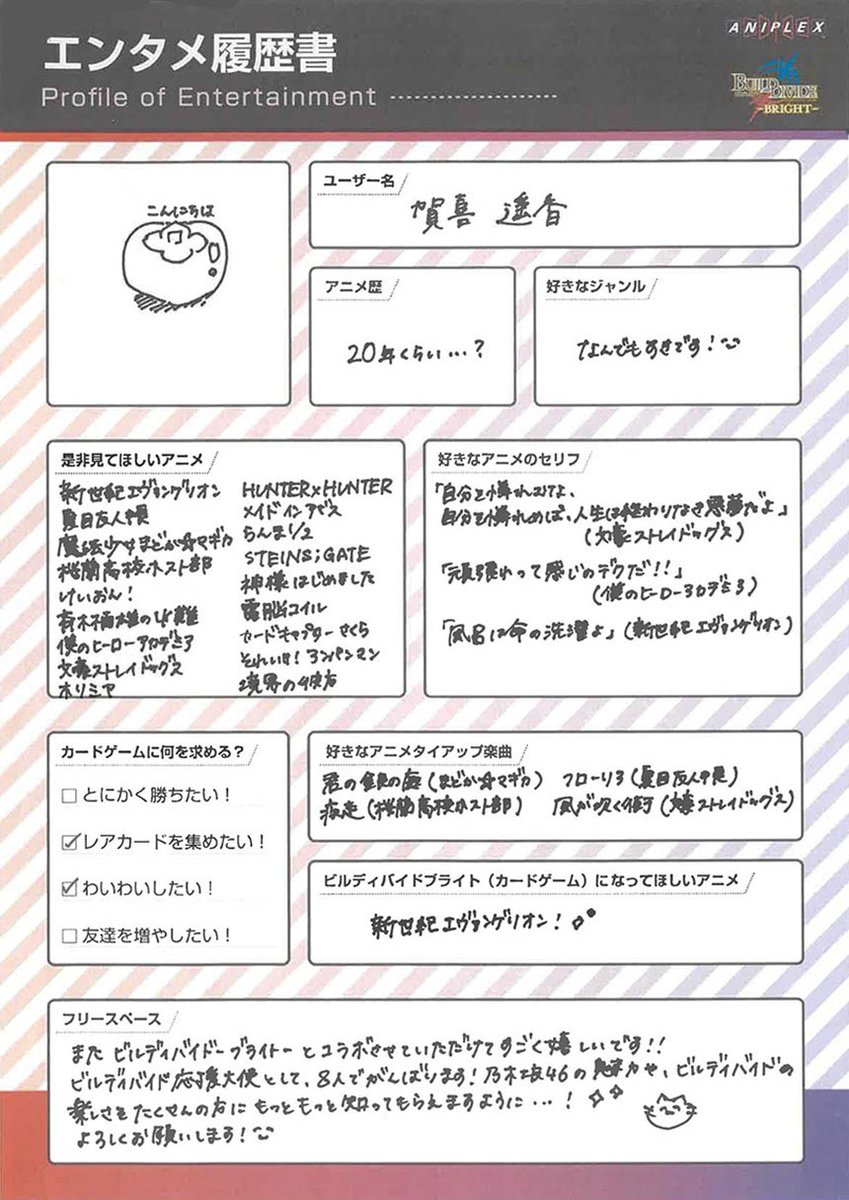 エンタメ履歴書
Profile of Entertainment
ANIPLEX
BUILD DIVIDE
-BRIGHT-
こんにちは
ユーザー名
賀喜 遥香
アニメ歴
20年くらい…?
好きなジャンル
なんでもすきです!
是非見てほしいアニメ
新世紀エヴァンゲリオン
夏目友人帳
魔法少女まどか☆マギカ
桜蘭高校ホスト部
けいおん!
斉木楠雄のΨ難
僕のヒーローアカデミア
文豪ストレイドッグス
ホリミヤ
HUNTER×HUNTER
メイドインアビス
らんま1/2
STEINS;GATE
神様はじめました
電脳コイル
カードキャプターさくら
それいけ!アンパンマン
境界の彼方
好きなアニメのセリフ
「自分を憐れむな、
自分を憐れめば、人生は終わりなき悪夢だよ」
(文豪ストレイドッグス)
「頑張れって感じのデクだ!!」
(僕のヒーローアカデミア)
「風呂は命の洗濯よ」(新世紀エヴァンゲリオン)
カードゲームに何を求める?
とにかく勝ちたい!
レアカードを集めたい!
わいわいしたい!
友達を増やしたい!
好きなアニメタイアップ楽曲
君の銀の庭(まどか☆マギカ) フローリア(夏目友人帳)
疾走(桜蘭高校ホスト部) 風が吹く街(文豪ストレイドッグス)
ビルディバイドブライト(カードゲーム)になってほしいアニメ
新世紀エヴァンゲリオン!
フリースペース
また ビルディバイドーブライトーとコラボさせていただけてすごく嬉しいです!!
ビルディバイド応援大使として、8人でがんばります!乃木坂46の魅力や、ビルディバイドの
楽しさをたくさんの方にもっともっと知ってもらえますように…!
よろしくお願いします!